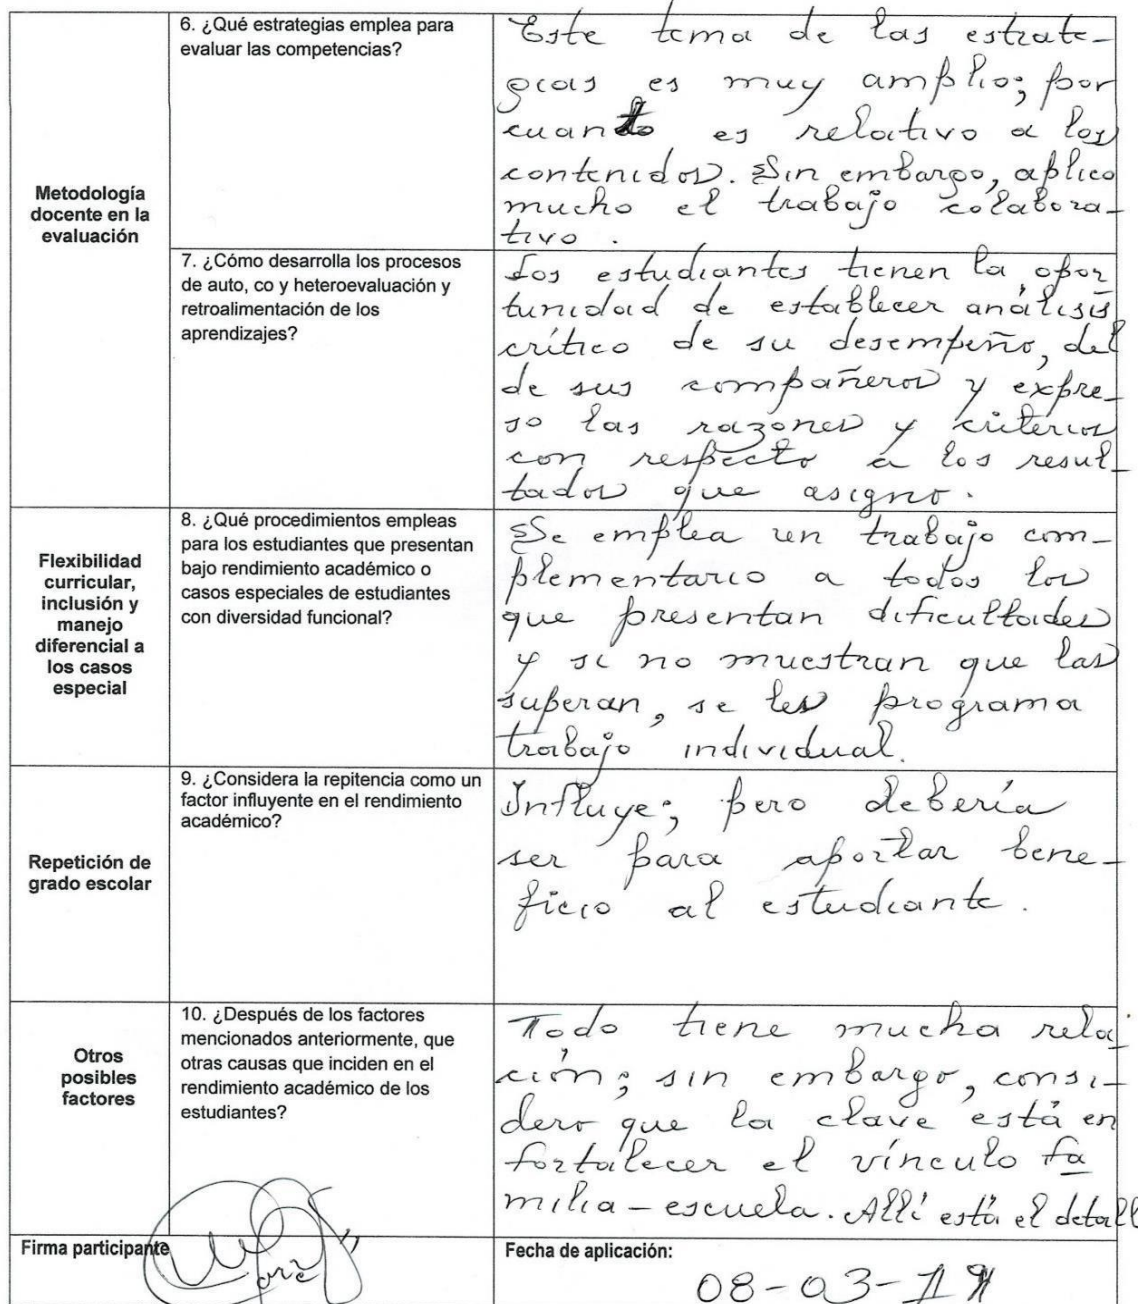 Metodología
docente en la
evaluación
6. ¿Qué estrategias emplea para
evaluar las competencias?
Este tema de las estrate-
gias es muy amplio; por
cuanto es relativo a los
contenidos. Sin embargo, aplico
mucho el trabajo colabora-
tivo.
7. ¿Cómo desarrolla los procesos
de auto, co y heteroevaluación y
retroalimentación de los
aprendizajes?
Los estudiantes tienen la opor
tunidad de establecer análisis
crítico de su desempeño, del
de sus compañeros y expre-
so las razones y criterios
con respecto a los resul-
tados que asigno.
Flexibilidad
curricular,
inclusión y
manejo
diferencial a
los casos
especial
8. ¿Qué procedimientos empleas
para los estudiantes que presentan
bajo rendimiento académico o
casos especiales de estudiantes
con diversidad funcional?
Se emplea un trabajo com-
plementario a todos los
que presentan dificultades
y si no muestran que las
superan, se les programa
trabajo individual.
Repetición de
grado escolar
9. ¿Considera la repitencia como un
factor influyente en el rendimiento
académico?
Influye; pero debería
ser para aportar bene-
ficio al estudiante.
Otros
posibles
factores
10. ¿Después de los factores
mencionados anteriormente, que
otras causas que inciden en el
rendimiento académico de los
estudiantes?
Todo tiene mucha rela
ción; sin embargo, consi-
dero que la clave está en
fortalecer el vínculo fa
milia-escuela. Allí está el detall
Firma participante
Fecha de aplicación:
08-03-19